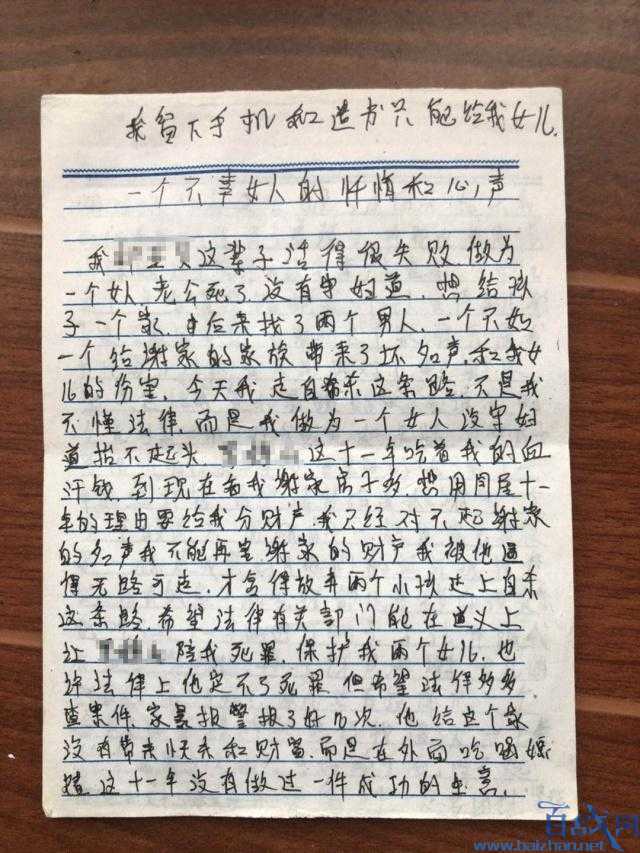 我留下手机和遗书只能给我女儿.
一个不幸女人的忏悔和心声
我 这辈子活得很失败做为
一个女人,老公死了没有守妇道,想给孩
子一个家,由后来找了两个男人,一个不如
一个给谢家的家族带来了坏名声,和我女
儿的伤害,今天我走自杀这条路,不是我
不懂法律,而是我做为一个女人没守妇
道抬不起头, 这十一年吃着我的血
汗钱,到现在看我谢家房子多,想用同居十一
年的理由要给我分财产,我已经对不起谢家
的名声我不能再害谢家的财产我被他逼
得无路可走,才舍得放弃两个小孩走上自杀
这条路,希望法律有关部门能在道义上
让 陪我死罪,保护我两个女儿,也
许法律上他定不了死罪 但希望法律多多
查案件,家暴报警报了好几次,他给这个家
没有带来快乐和财富,而是在外面吃喝嫖
赌 这十一年没有做过一件成功的生意,
百战网
www.baizhan.net